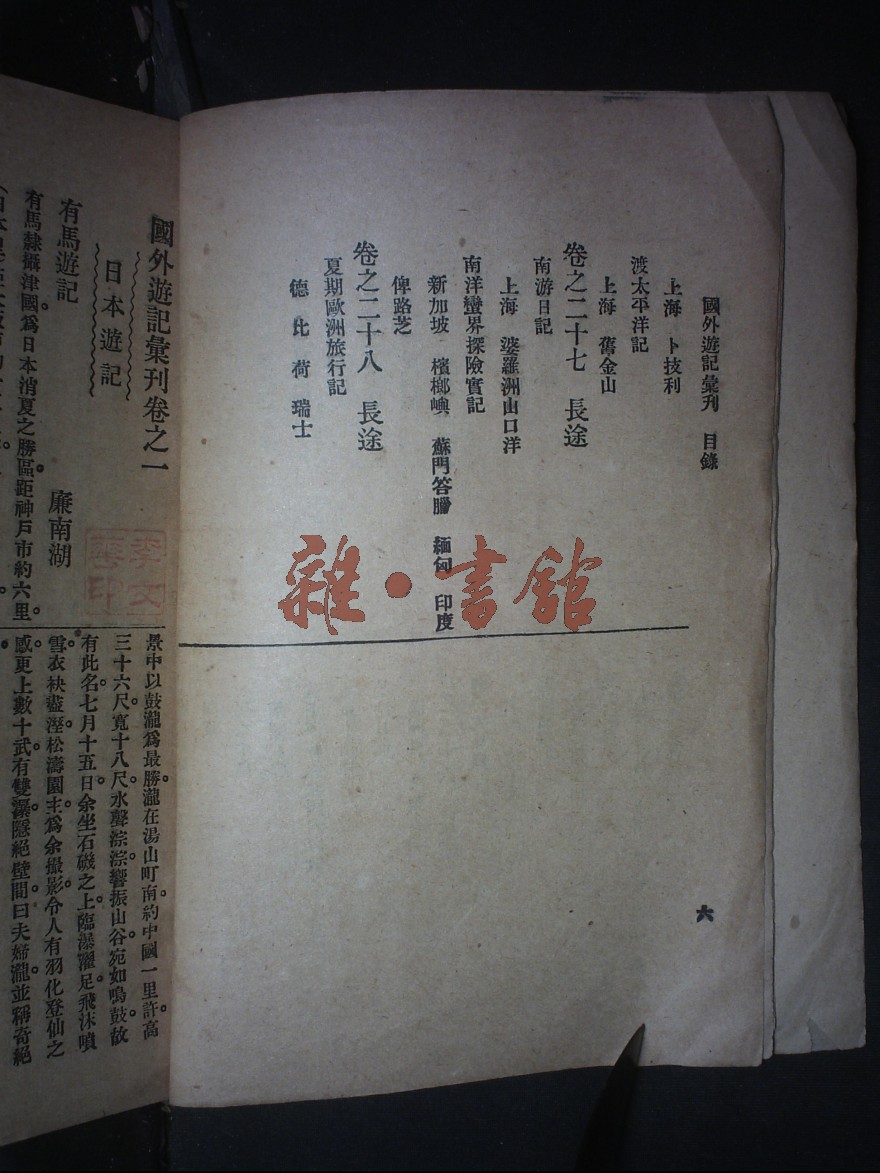 國外遊記彙刊 目錄
上海 卜技利
渡太平洋記
上海 舊金山
卷之二十七 長途
南游日記
上海 婆羅洲山口洋
南洋蠻界探險實記
新加坡 檳榔嶼 蘇門答臘 緬甸 印度
俾路芝
卷之二十八 長途
夏期歐洲旅行記
德 比 荷 瑞士
六
雜·書館
國外遊記彙刊卷之一
日本遊記
有馬遊記 廉南湖
有馬隸攝津國。爲日本消夏之勝區。距神戶市約六里。
李文
華印
景中以鼓瀧爲最勝。瀧在湯山町南。約中國一里許。高
三十六尺。寬十八尺。水聲淙淙。響振山谷。宛如鳴鼓。故
有此名。七月十五日。余坐石磯之上。臨瀑濯足。飛沫噴
雪。衣袂盡溼。松濤園主。爲余撮影。令人有羽化登仙之
感。更上數十武。有雙瀑隱絕壁間。曰夫婦瀧。並稱奇絕